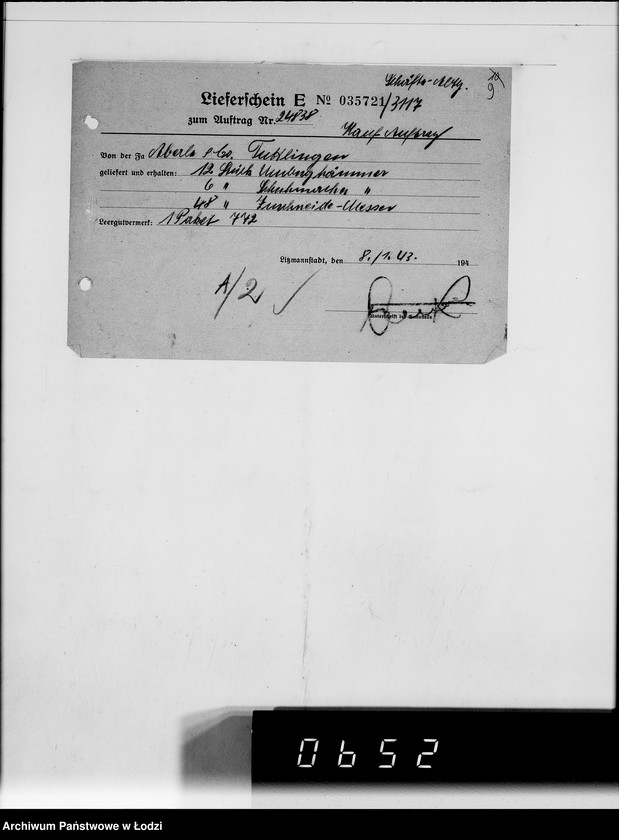 Schäfte-Abtg.
10
9
Lieferschein E Nº 035721/3117
zum Auftrag Nr. 24838
Kauf Auftrag
Von der Fa Aberle & Co. Tuttlingen
geliefert und erhalten: 12 Stück
6 " Schuhmacher "
48 " Zuschneide-Messer
Leergutvermerk: 1 Paket 772
Litzmannstadt, den 8./1.43. 194
A/2
Unterschrift des
0652
Archiwum Państwowe w Łodzi